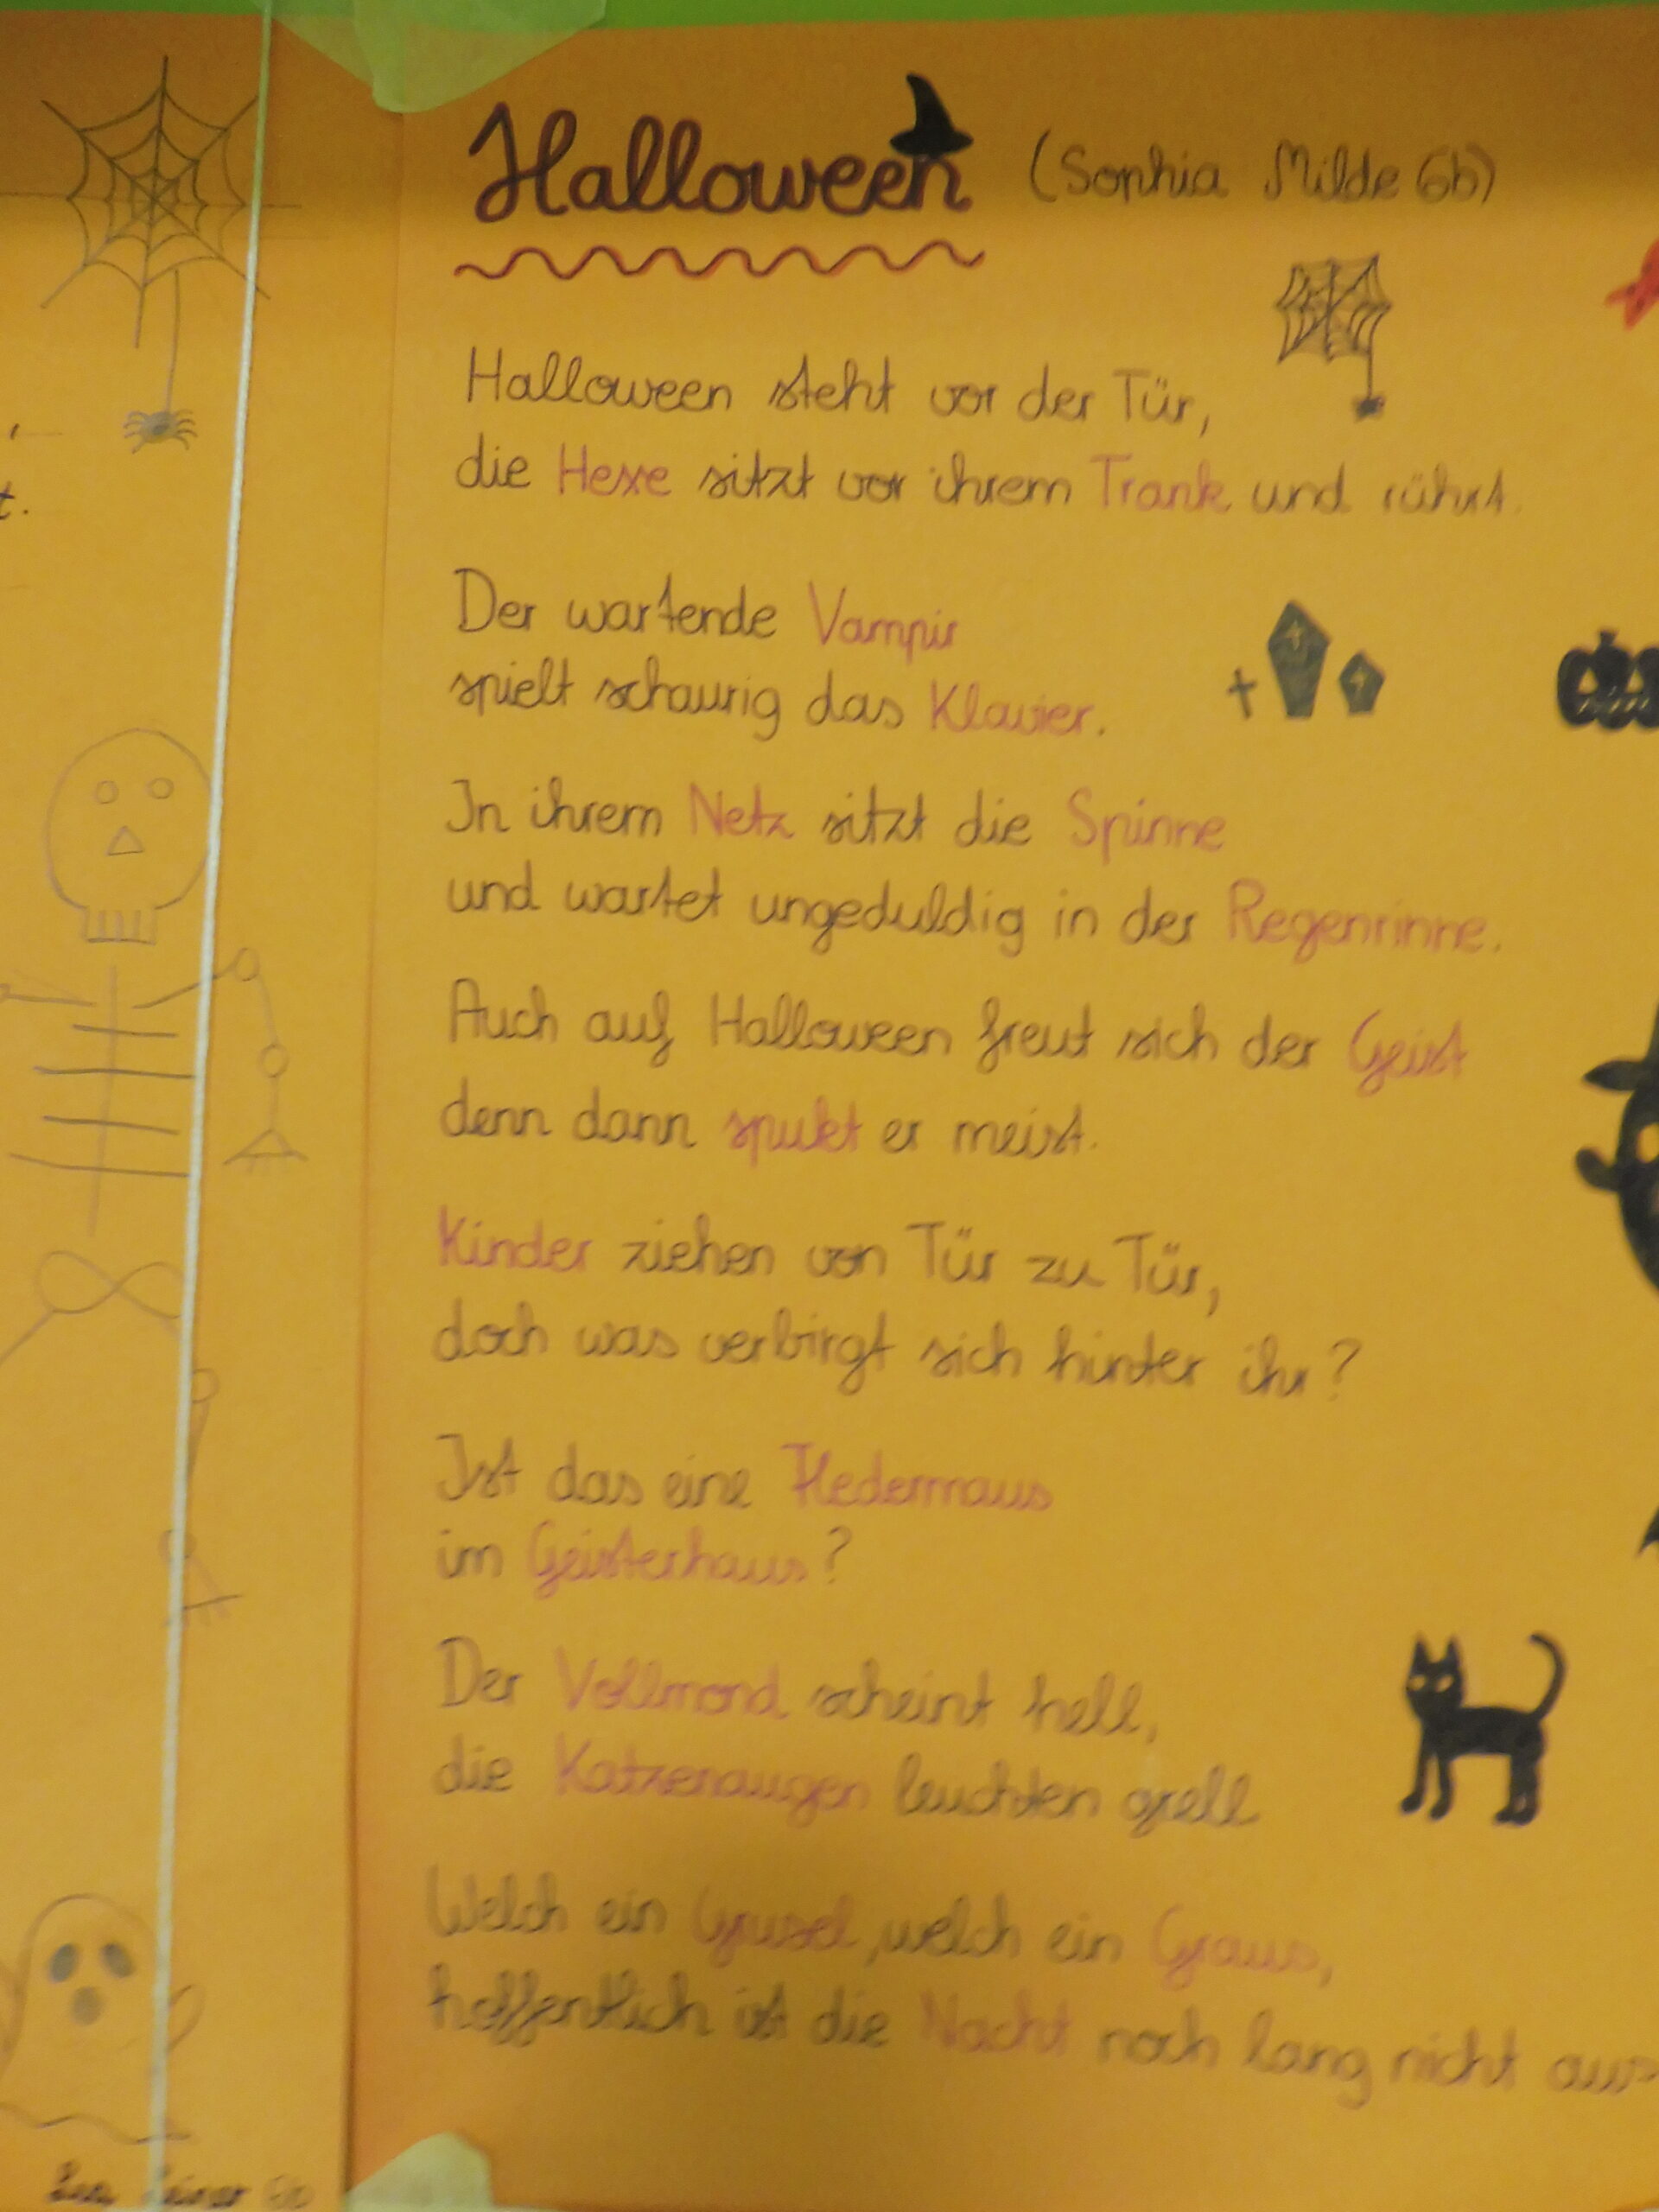 Halloween (Sophia Milde 6b)
Halloween steht vor der Tür,
die Hexe sitzt vor ihrem Trank und rührt.
Der wartende Vampir
spielt schaurig das Klavier.
In ihrem Netz sitzt die Spinne
und wartet ungeduldig in der Regenrinne.
Auch auf Halloween freut sich der Geist
denn dann spukt er meist.
Kinder ziehen von Tür zu Tür,
doch was verbirgt sich hinter ihr?
Ist das eine Fledermaus
im Geisterhaus?
Der Vollmond scheint hell,
die Katzenaugen leuchten grell
Welch ein Grusel, welch ein Graus,
hoffentlich ist die Nacht noch lang nicht aus
t.
6b